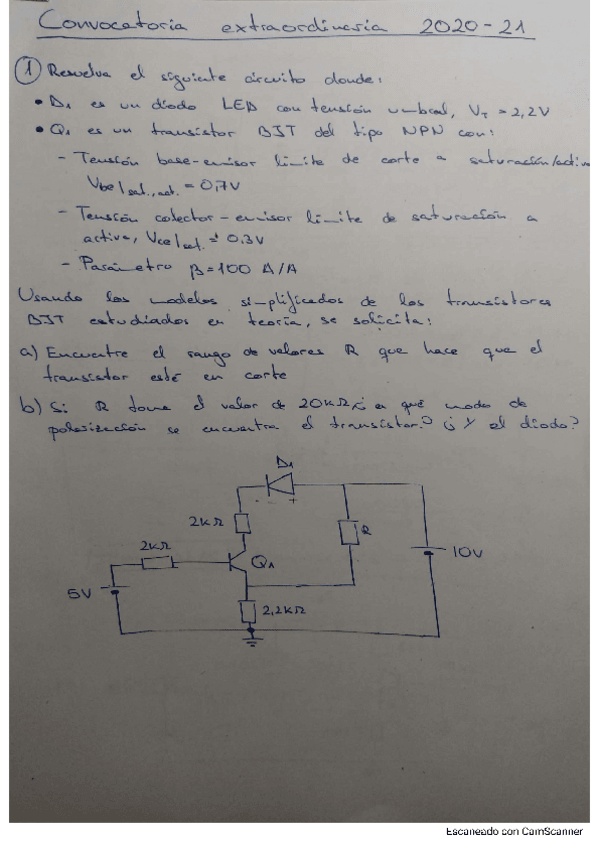 Convocatoria extraordinaria 2020-21
1 Resuelva el siguiente circuito donde:
• D1 es un diodo LED con tensión umbral, VT = 2,2V
• Q1 es un transistor BJT del tipo NPN con:
- Tensión base-emisor límite de corte a saturación/activa
Vbe|sat, act. = 0,7V
- Tensión colector-emisor límite de saturación a
activa, Vce|sat. = 0.3V
- Parámetro β=100 A/A
Usando los modelos simplificados de los transistores
BJT estudiados en teoría, se solicita:
a) Encuentre el rango de valores R que hace que el
transistor esté en corte
b) Si R toma el valor de 20kΩ ¿en qué modo de
polarización se encuentra el transistor? ¿Y el diodo?
D1
- +
2kΩ
R
2kΩ
Q1
10V
5V
2,2kΩ
Escaneado con CamScanner